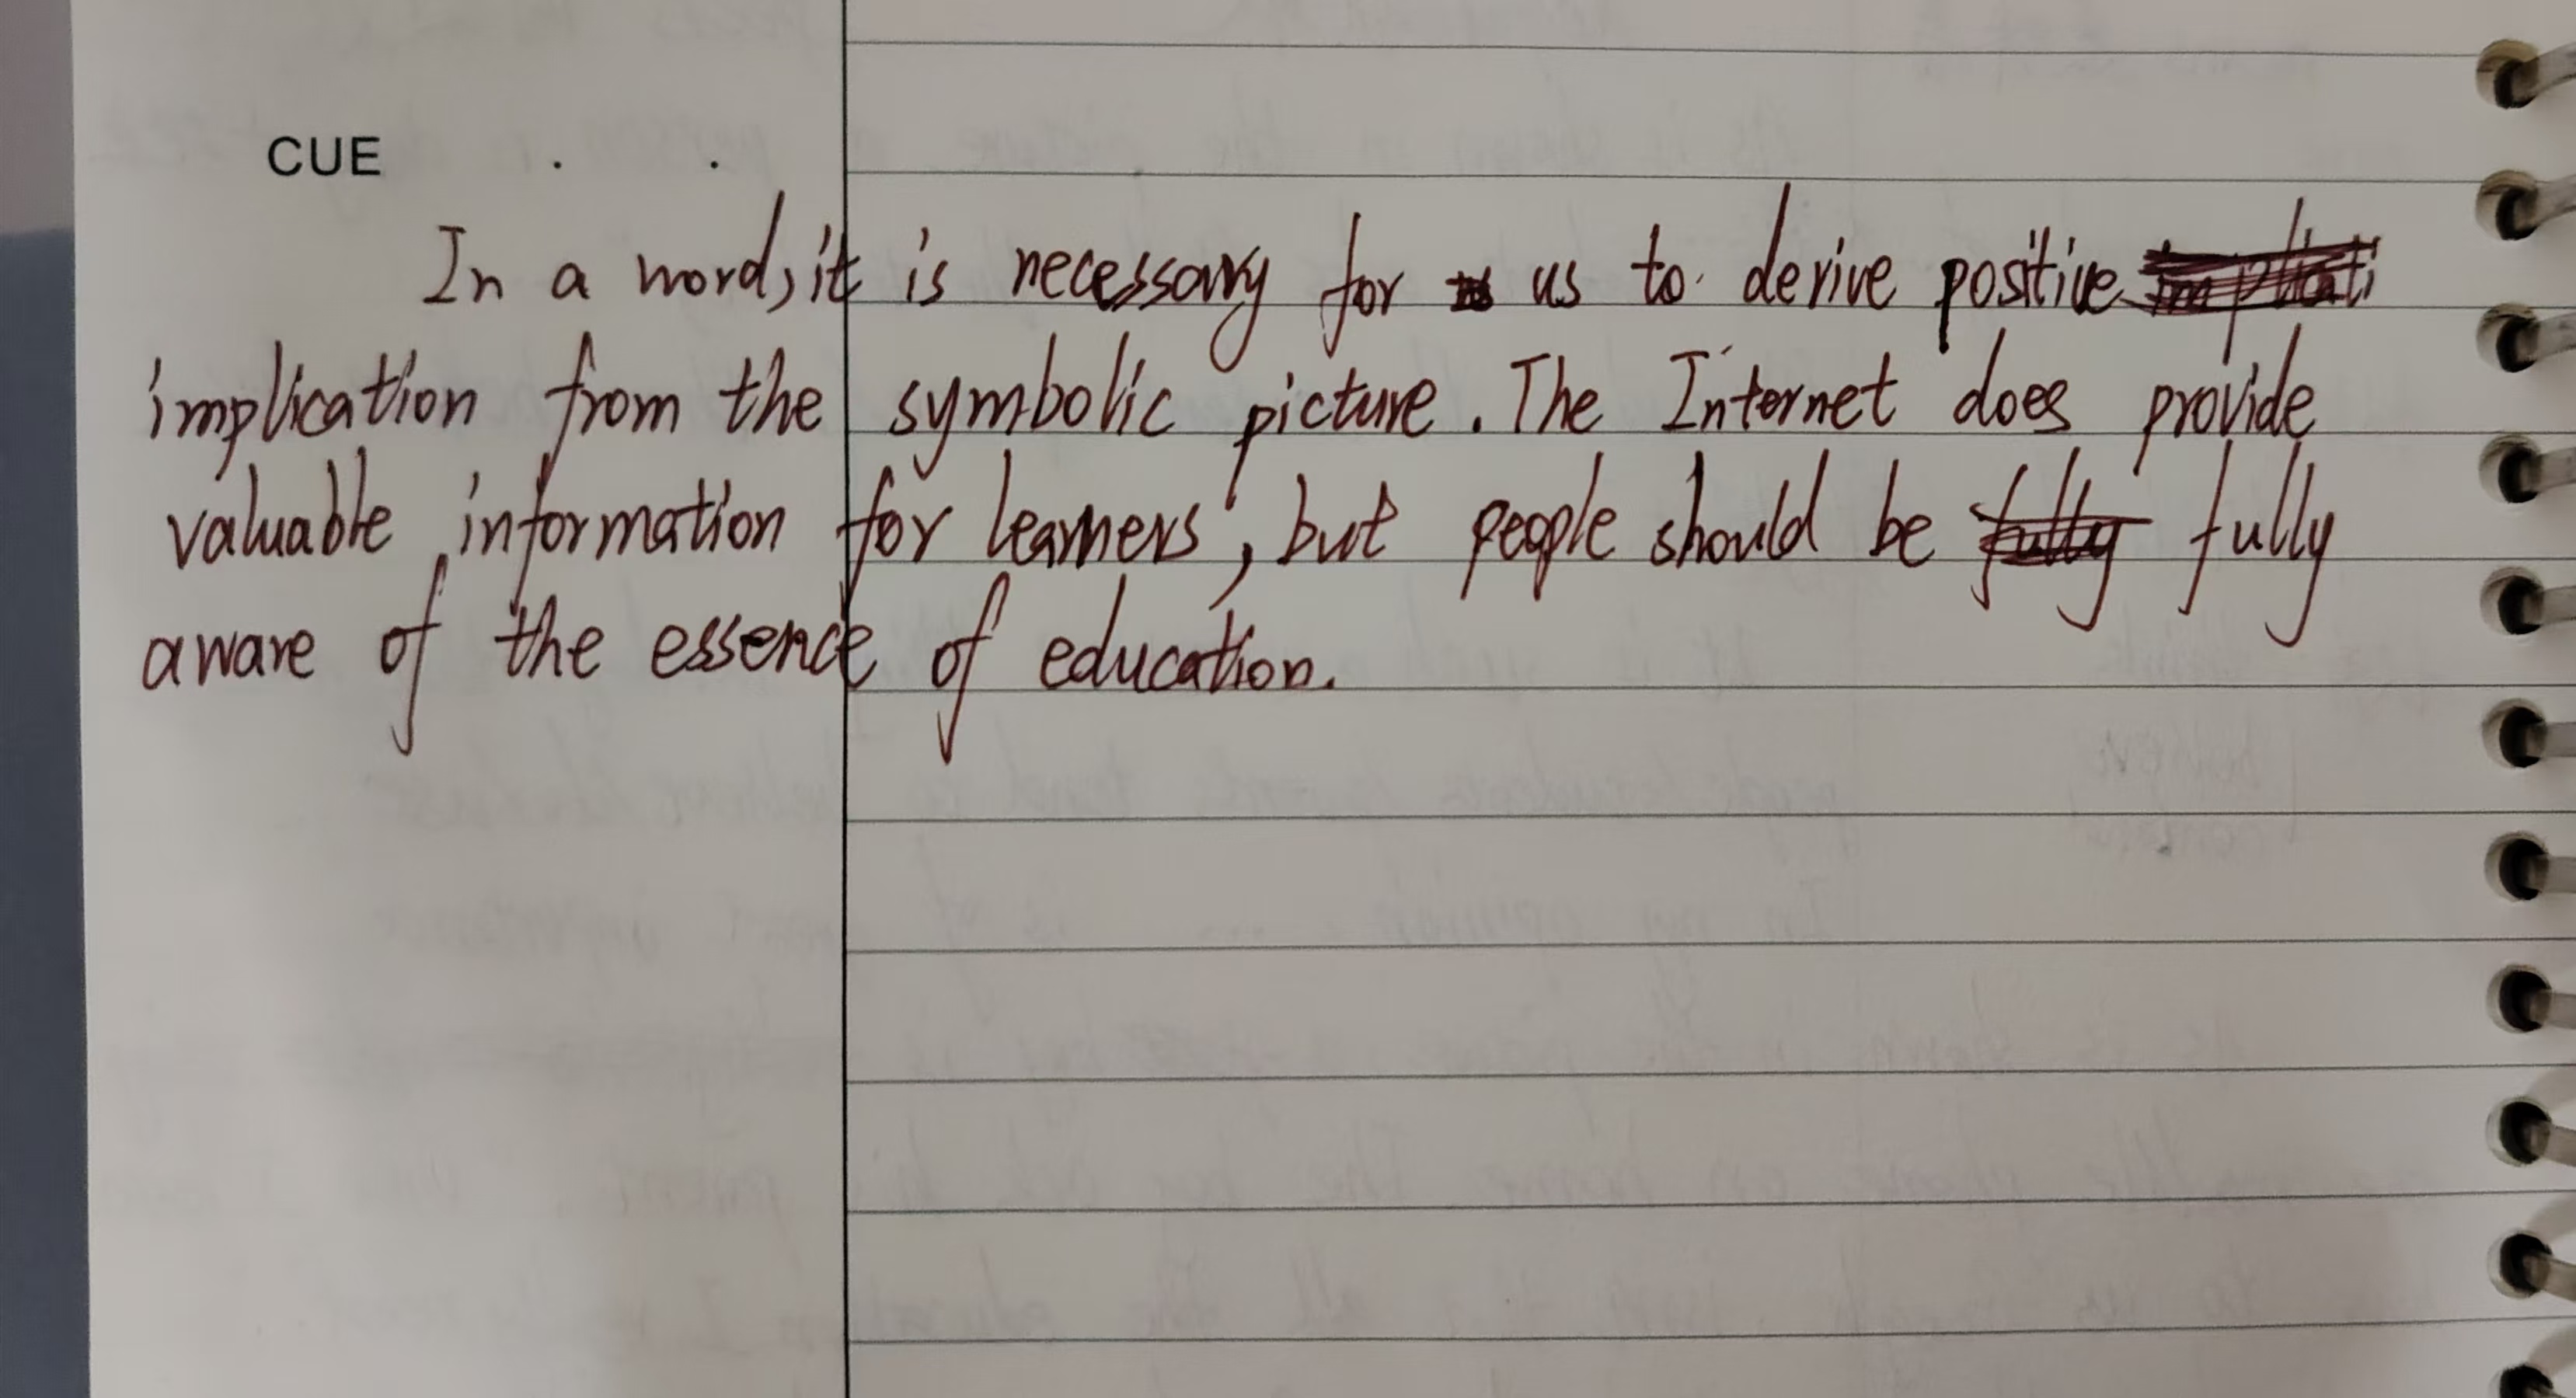 CUE
In a word, it is necessary for us to derive positive
implication from the symbolic picture. The Internet does provide
valuable information for learners, but people should be fully
aware of the essence of education.